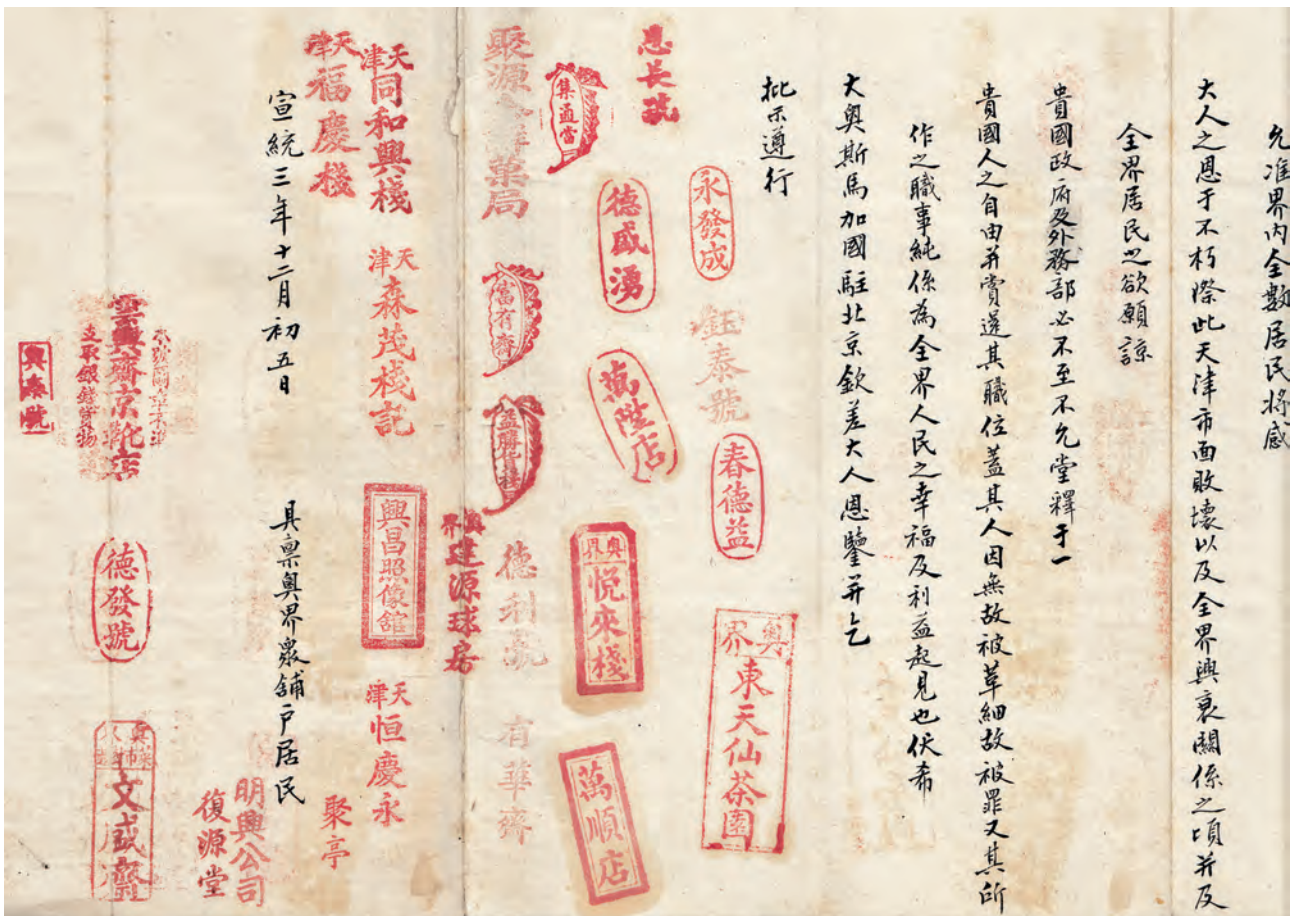 允准界内全數居民將感
大人之恩于不朽際此天津市面敗壞以及全界興衰關係之頃并及
全界居民之欲願諒
貴國政府及外務部必不至不允堂釋于一
貴國人之自由并賞還其職位蓋其人因無故被革細故被罪又其所
作之職事純係為全界人民之幸福及利益起見也伏希
大奧斯馬加國駐北京欽差大人恩鑒并乞
批示遵行
永發成
鈺泰號
春德益
奧界
東天仙茶園
恳長號
德盛湧
萬陞店
奧界
悦來棧
萬順店
集通當
富有齋
益勝
德利號
有華齋
聚源
藥局
奧界
建源球房
天津
同和興棧
天津
森茂棧記
興昌照像館
天津
恒慶永
天津
福慶棧
聚亭
宣統三年十二月初五日
具稟奧界眾舖户居民
明興公司
復源堂
雲興齋京靴店
支取銀錢貨物
德發號
文盛齋
興泰號